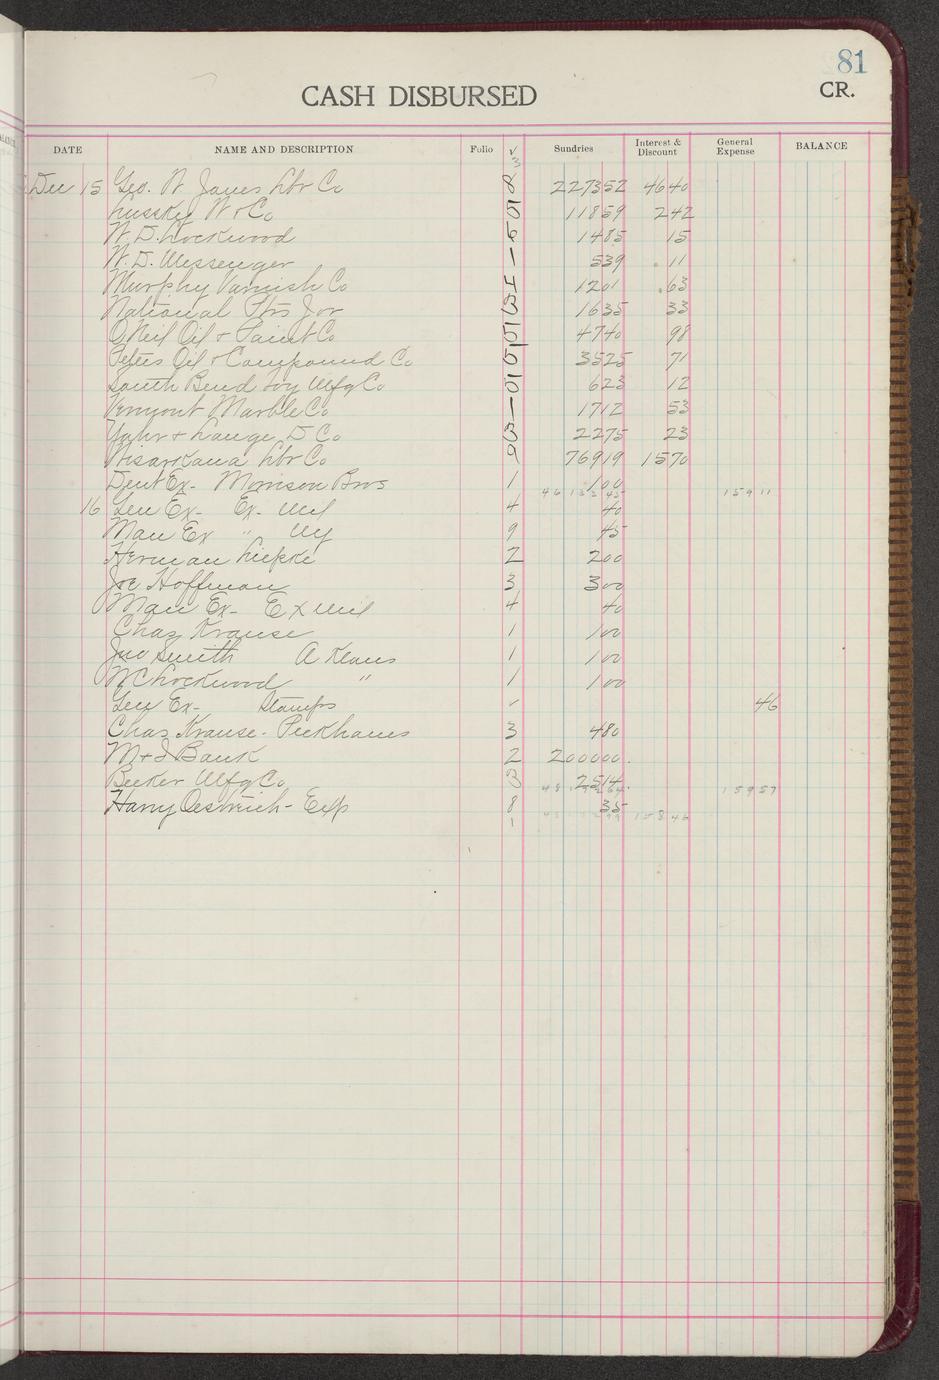 81
CASH DISBURSED CR.
DATE NAME AND DESCRIPTION Folio √ Sundries Interest & Discount General Expense BALANCE
3
Dec 15 Geo. W Jones Lbr Co 8 227352 4640
Lussky W & Co 5 11859 242
W. D. Lockwood 5 1485 15
W. D. Messenger 1 539 11
Murphy Varnish Co 1201 63
National 3 1635 33
O Neil Oil & Paint Co 5 4740 98
Peters Oil & Compound Co 5 3525 71
South Bend Toy Mfg Co 5 623 12
Vermont Marble Co 1 1712 53
Yahr & Lange D Co 3 2275 23
Wisarkana Lbr Co 9 76919 1570
Dent Ex- Morrison Bros 1 100
15911
16 Gen Ex- Ex- Mil 4 40
Man Ex " 9 45
Herman Liefke 2 200
Joe Hoffman 3 300
Man Ex- Ex Mil 4 40
Chas Krause 1 100
Jno Smith A Klaus 1 100
W C Lockwood " 1 100
Gen Ex- Stamps √ 46
Chas Krause- Peckhams 3 480
M & I Bank 2 200000
Becker Mfg Co 3 2514
15957
Harry Oestreich- Exp 8 35
15846
1